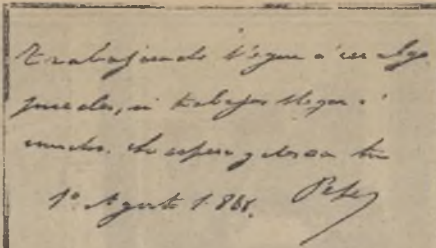 Trabajando llegué a ser algo
puedes, si trabajas llegar á
mucho. Lo espera y desea tu
1º Agosto 1.868. Pepe